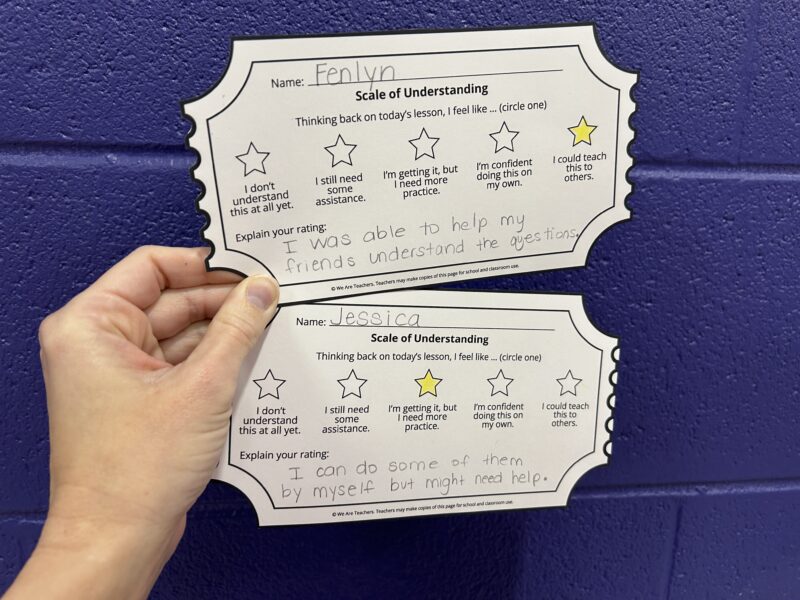 Name: Fenlyn
Scale of Understanding
Thinking back on today's lesson, I feel like ... (circle one)
I don't
understand
this at all yet.
I still need
some
assistance.
I'm getting it, but
I need more
practice.
I'm confident
doing this on
my own.
I could teach
this to
others.
Explain your rating:
I was able to help my
friends understand the questions.
© We Are Teachers. Teachers may make copies of this page for school and classroom use.
Name: Jessica
Scale of Understanding
Thinking back on today's lesson, I feel like ... (circle one)
I don't
understand
this at all yet.
I still need
some
assistance.
I'm getting it, but
I need more
practice.
I'm confident
doing this on
my own.
I could teach
this to
others.
Explain your rating:
I can do some of them
by myself but might need help.
© We Are Teachers. Teachers may make copies of this page for school and classroom use.